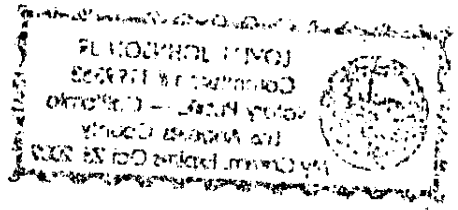 JOHNSON JR
Commission #
Notary Public — California
Los Angeles County
My Comm. Expires Oct 23,